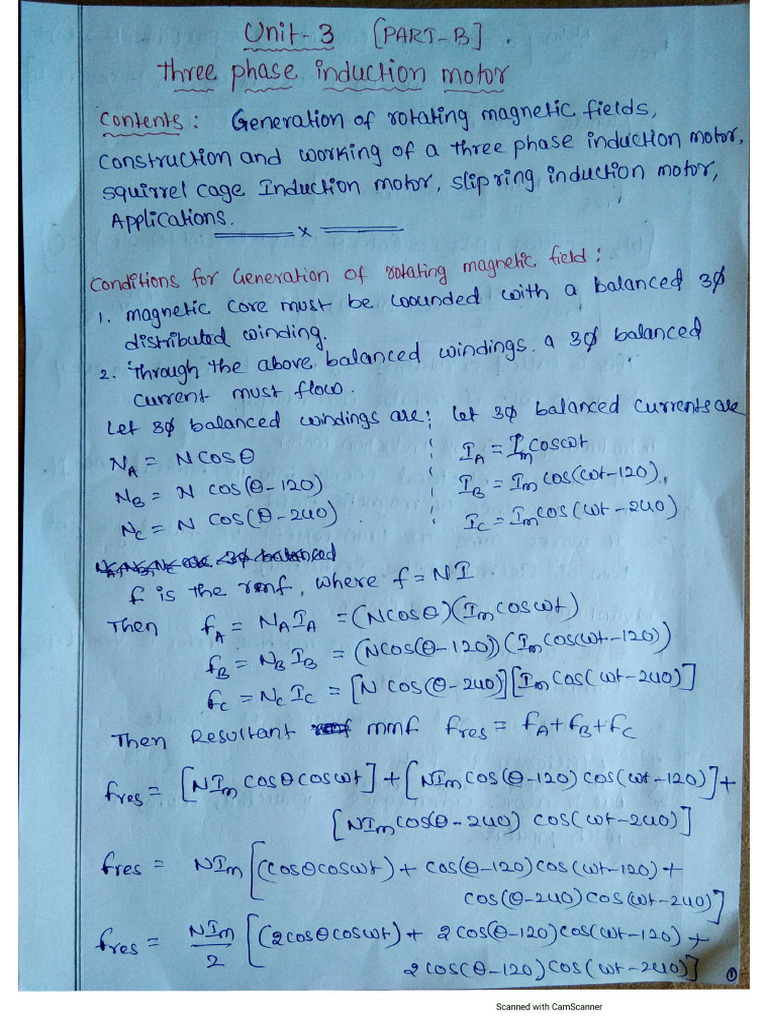 Unit-3 [PART-B].
Three phase induction motor
Contents: Generation of rotating magnetic fields,
Construction and working of a three phase induction motor,
squirrel cage Induction motor, slipring induction motor,
Applications.
x
Conditions for Generation of rotating magnetic field:
1. magnetic core must be wounded with a balanced 3ø
distributed winding.
2. Through the above balanced windings a 3ø balanced
current must flow.
Let 3ø balanced windings are; Let 3ø balanced currents are
N_A = N cos θ I_A = I_m cos ωt
N_B = N cos(θ-120) I_B = I_m cos(ωt-120),
N_C = N cos(θ-240) I_C = I_m cos(ωt-240)
f is the mmf, where f = NI
Then f_A = N_A I_A = (N cos θ)(I_m cos ωt)
f_B = N_B I_B = (N cos(θ-120))(I_m cos(ωt-120))
f_C = N_C I_C = [N cos(θ-240)][I_m cos(ωt-240)]
Then Resultant mmf f_res = f_A+f_B+f_C
f_res = [NI_m cos θ cos ωt] + [NI_m cos(θ-120) cos(ωt-120)] +
[NI_m cos(θ-240) cos(ωt-240)]
f_res = NI_m [(cos θ cos ωt) + cos(θ-120) cos(ωt-120) +
cos(θ-240) cos(ωt-240)]
f_res = NI_m/2 [(2 cos θ cos ωt) + 2 cos(θ-120) cos(ωt-120) +
2 cos(θ-120) cos(ωt-240)] 1
Scanned with CamScanner